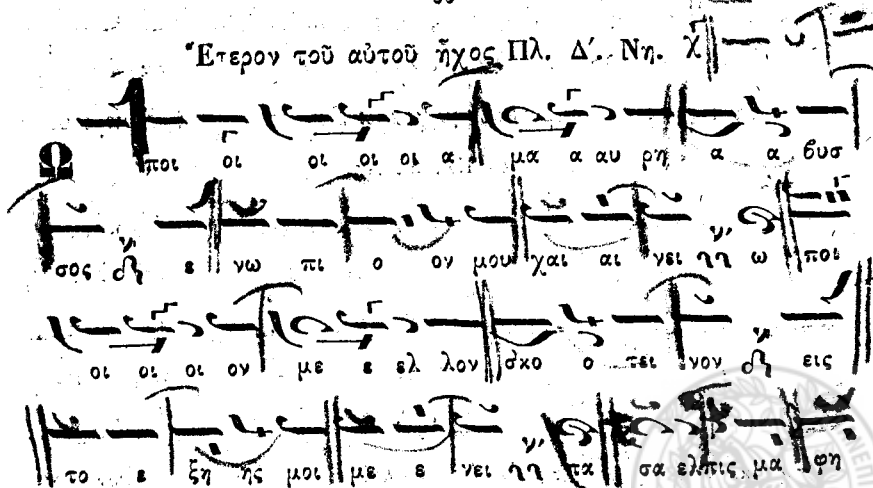 Ἕτερον τοῦ αὐτοῦ ἦχος Πλ. Δ΄. Νη.
Ω ποι οι οι οι οι α μα α αυ ρη α α βυσ
σος ε νω πι ο ον μου χαι αι νει ω ποι
οι οι οι ον με ε ελ λον σκο ο τει νον εις
το ε ξη ης μοι με ε νει πα σα ελπις μα φη